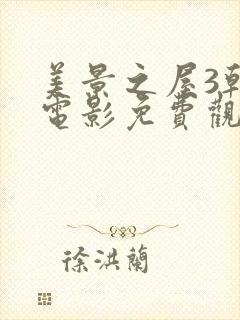 美景之屋3韓
電影免費觀
徐洪蘭